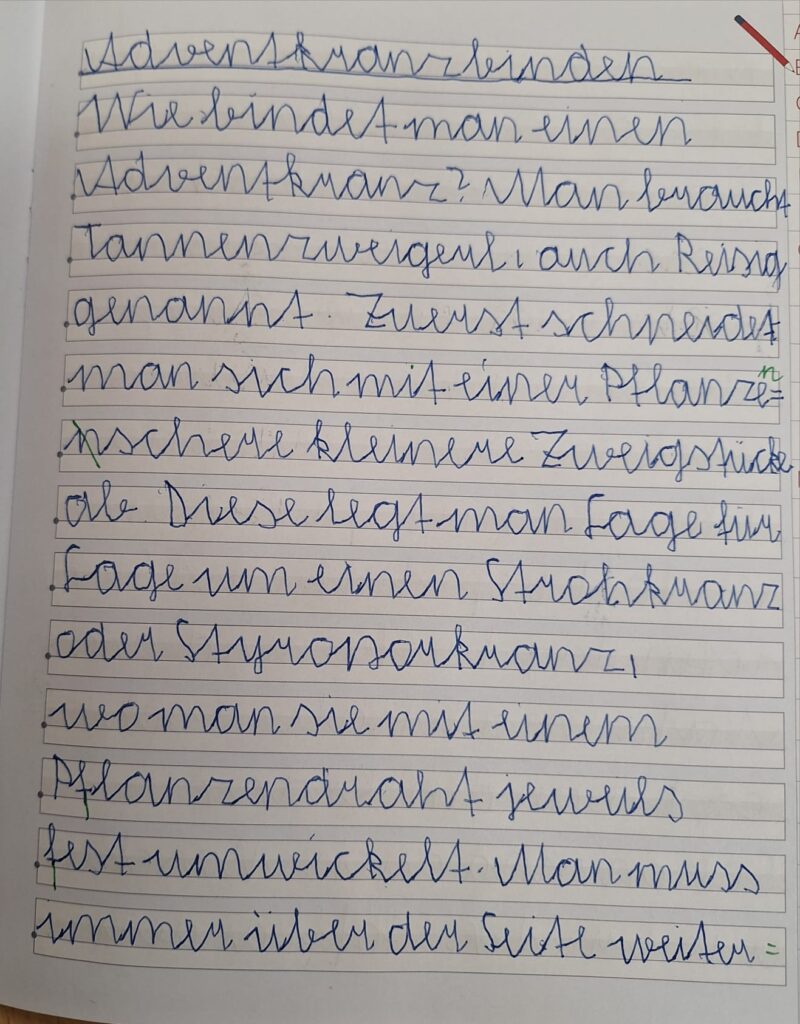 Adventkranzbinden
Wie bindet man einen
Adventkranz? Man braucht
Tannenzweigerl, auch Reisig
genannt. Zuerst schneidet
man sich mit einer Pflanzen=
schere kleinere Zweigstücke
ab. Diese legt man Lage für
Lage um einen Strohkranz
oder Styroporkranz,
wo man sie mit einem
Pflanzendraht jeweils
fest umwickelt. Man muss
immer über der Seite weiter=